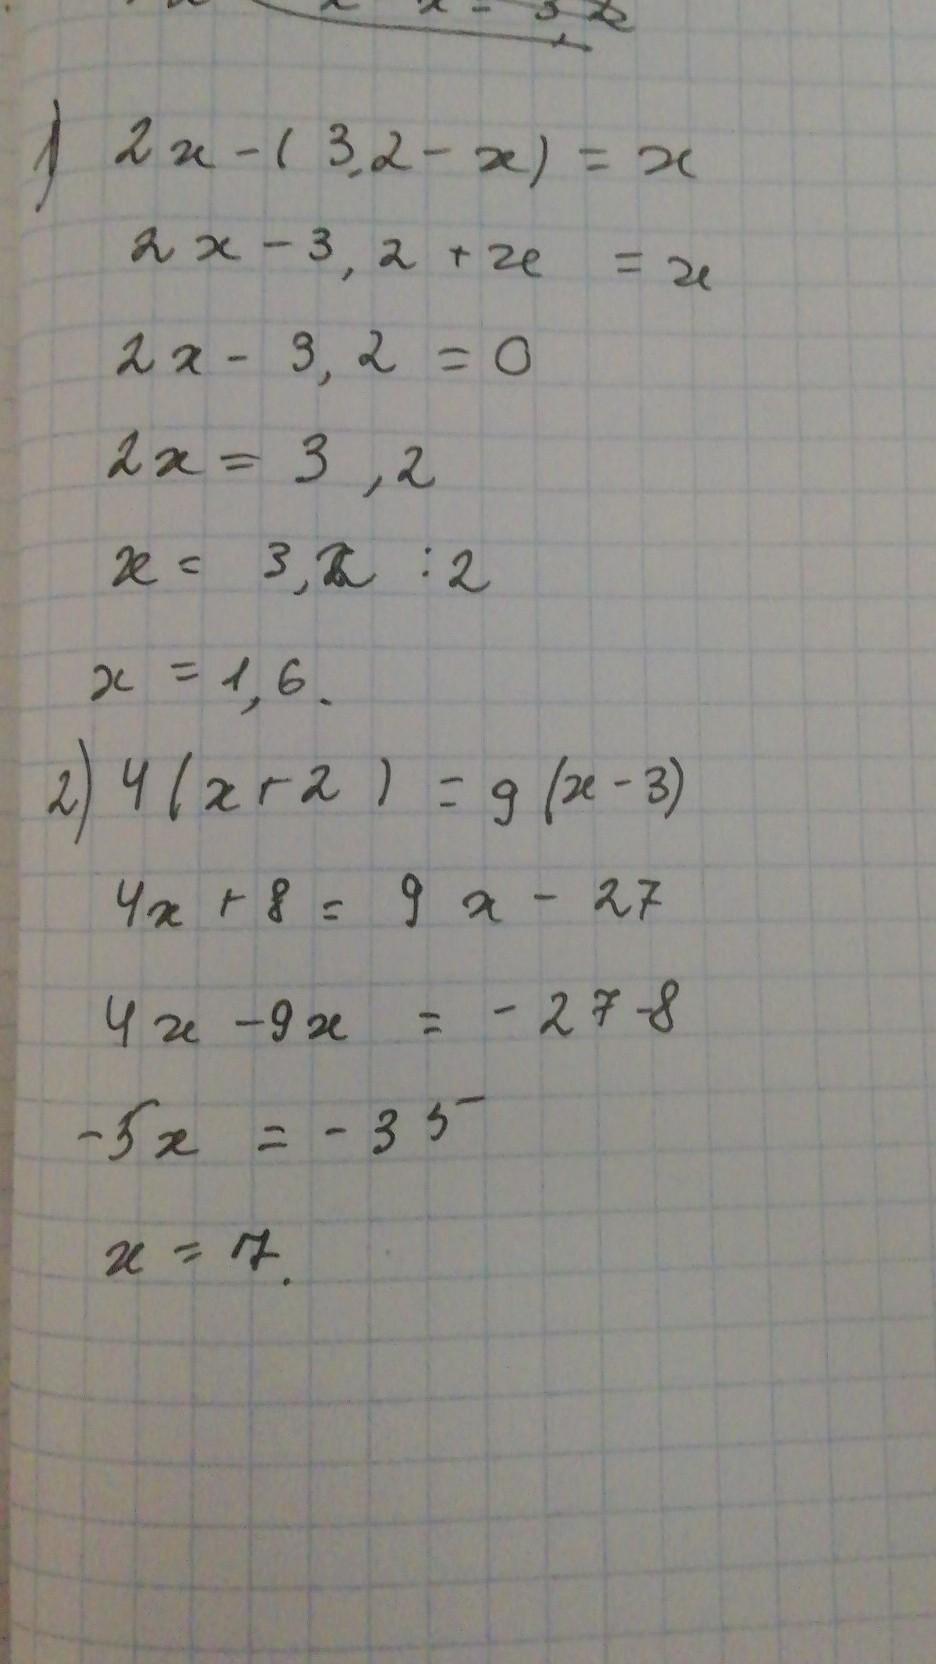 x = 3,2
1) 2x - ( 3,2 - x) = x
2x - 3,2 + x = x
2x - 3,2 = 0
2x = 3,2
x = 3,2 : 2
x = 1,6.
2) 4(x+2) = 9(x-3)
4x + 8 = 9x - 27
4x - 9x = - 27-8
-5x = - 35
x = 7.